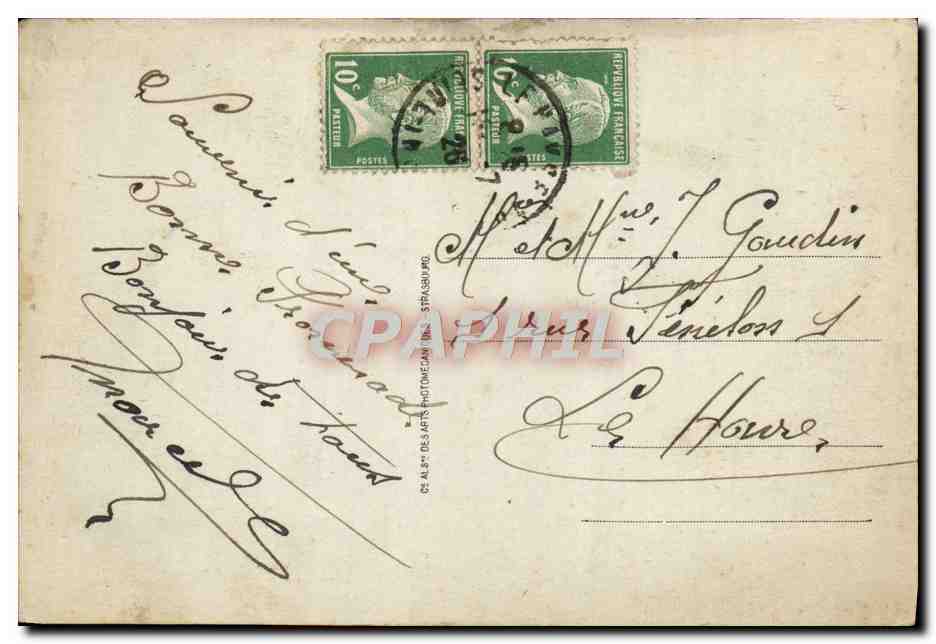 Souvenir d'une
Bonne Promenade
Bonjour de tous
Marcel
10c
REPUBLIQUE FRANÇAISE
PASTEUR
POSTES
10c
REPUBLIQUE FRANÇAISE
PASTEUR
POSTES
Mr et Mme J. Gaudin
1 rue Fénelon 1
Le Havre
Cie ALSne DES ARTS PHOTOMECANIQUES - STRASBOURG
CPAPHIL